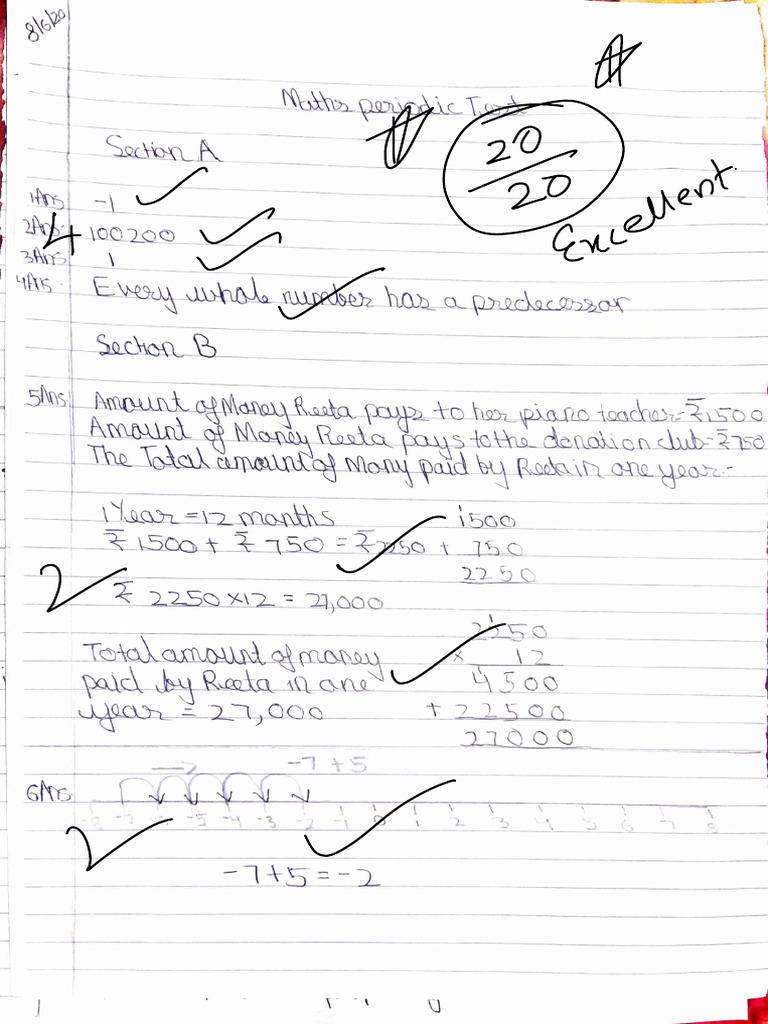 8/6/20
Maths periodic Test
20/20
Excellent
Section A
1Ans -1
2Ans 100200
4
3Ans 1
4Ans Every whole number has a predecessor
Section B
5Ans Amount of Money Reeta pays to her piano teacher-₹1,500
Amount of Money Reeta pays to the donation club-₹750
The Total amount of Mony paid by Reeta in one year:-
1 Year = 12 months
1500
₹ 1500 + ₹ 750 = ₹2250
+ 750
2250
2
₹ 2250 x12 = 27,000
2250
Total amount of money
x 12
paid by Reeta in one
4500
year = 27,000
+ 22500
27000
-7 + 5
6Ans
-8 -7 -6 -5 -4 -3 -2 -1 0 1 2 3 4 5 6 7 8
2
-7+5 = -2